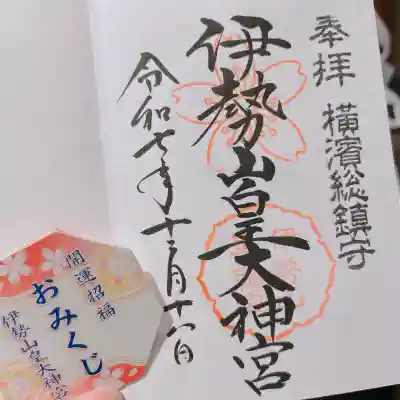 奉拝 横濱総鎮守
伊勢山皇大神宮
令和七年十二月十六日
開運招福
おみくじ
伊勢山皇大神宮